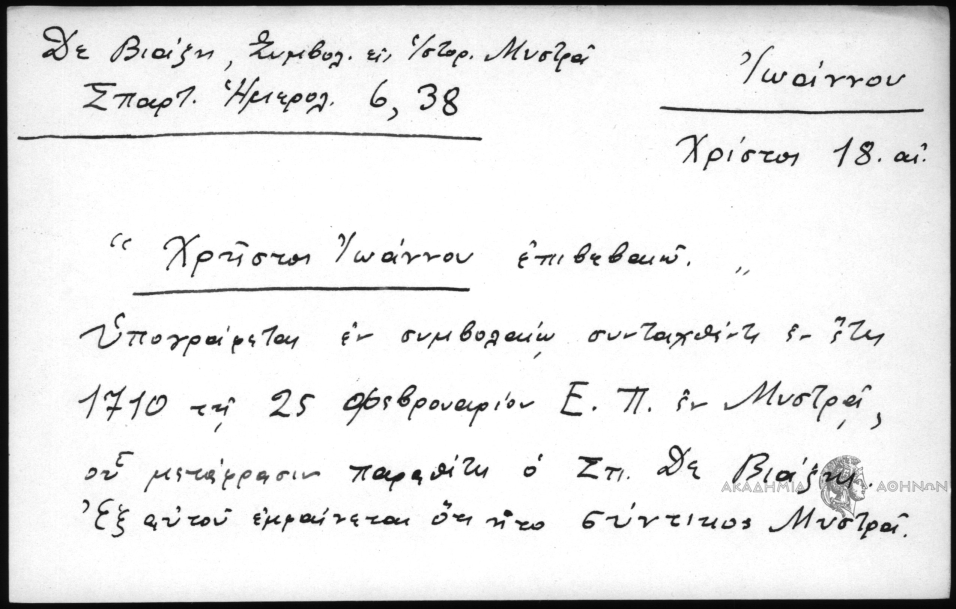 Δε Βιάζη, Συμβολ. εις Ἱστορ. Μυστρᾶ
Σπαρτ. Ἡμερολ. 6, 38
Ἰωάννου
Χρίστος 18. αἰ.
“ Χρῆστος Ἰωάννου ἐπιβεβαιῶ. „
Ὑπογράφεται ἐν συμβολαίῳ συνταχθέντι ἐν ἔτει
1710 τῇ 25 Φεβρουαρίου Ε. Π. ἐν Μυστρᾷ,
οὗ μετάφρασιν παραθέτει ὁ Σπ. Δε Βιάζης.
Ἐξ αὐτοῦ ἐμφαίνεται ὅτι ἦτο σύντικος Μυστρᾶ.
ΑΚΑΔΗΜΙΑ ΑΘΗΝΩΝ